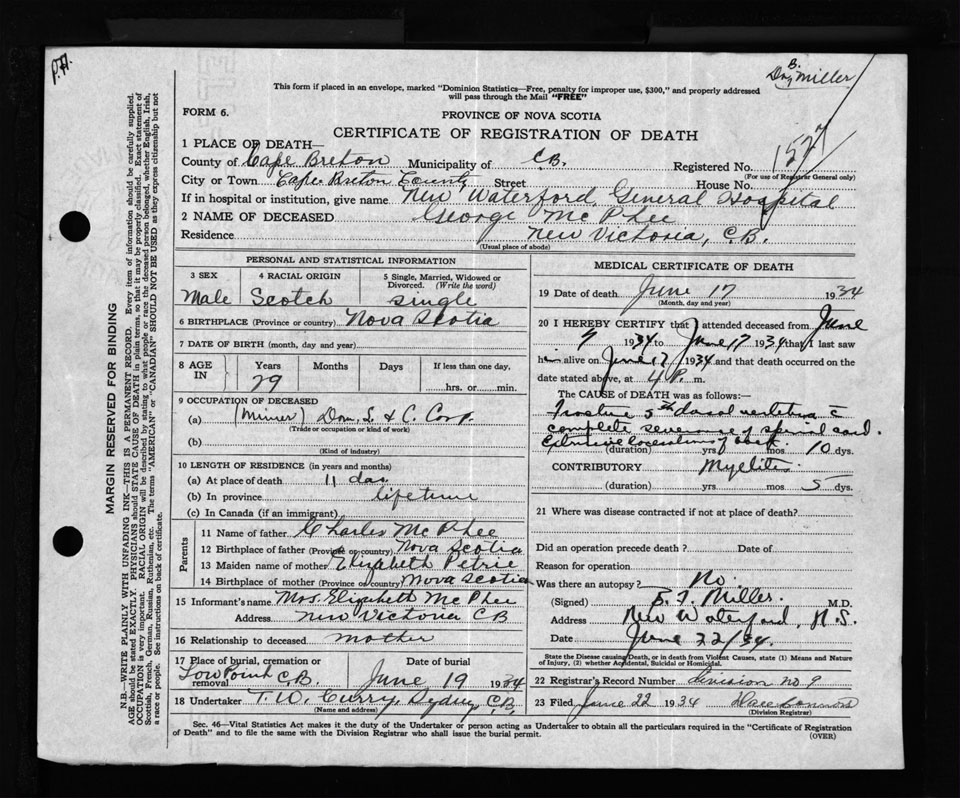 P.H.
B.
Dr. Miller
This form if placed in an envelope, marked "Dominion Statistics—Free, penalty for improper use, $300," and properly addressed
will pass through the Mail "FREE"
FORM 6.
PROVINCE OF NOVA SCOTIA
CERTIFICATE OF REGISTRATION OF DEATH
1 PLACE OF DEATH—
County of Cape Breton Municipality of C.B. Registered No. 1527
(For use of Registrar General only)
City or Town Cape Breton County Street House No.
If in hospital or institution, give name New Waterford General Hospital
2 NAME OF DECEASED George McPhee
Residence New Victoria, C.B.
(Usual place of abode)
PERSONAL AND STATISTICAL INFORMATION
3 SEX 4 RACIAL ORIGIN 5 Single, Married, Widowed or Divorced. (Write the word)
Male Scotch single
6 BIRTHPLACE (Province or country) Nova Scotia
7 DATE OF BIRTH (month, day and year)
8 AGE IN Years Months Days If less than one day,
29 hrs. or min.
9 OCCUPATION OF DECEASED
(a) (Miner) Dom. S. & C. Corp.
(Trade or occupation or kind of work)
(b)
(Kind of industry)
10 LENGTH OF RESIDENCE (in years and months)
(a) At place of death 11 day
(b) In province lifetime
(c) In Canada (if an immigrant)
Parents
11 Name of father Charles McPhee
12 Birthplace of father (Province or country) Nova Scotia
13 Maiden name of mother Elizabeth Petrie
14 Birthplace of mother (Province or country) Nova Scotia
15 Informant's name Mrs. Elizabeth McPhee
Address New Victoria CB
16 Relationship to deceased mother
17 Place of burial, cremation or removal Low Point C.B. Date of burial June 19 1934
18 Undertaker T. W. Curry, Sydney C.B.
(Name and address)
MEDICAL CERTIFICATE OF DEATH
19 Date of death June 17 1934
(Month, day and year)
20 I HEREBY CERTIFY that I attended deceased from June
9 1934 to June 17 1934 that I last saw
him alive on June 17 1934 and that death occurred on the
date stated above, at 4 P. m.
The CAUSE OF DEATH was as follows:—
Fracture 5th dorsal vertebra c̄
complete severance of spinal cord.
Extensive lacerations of back.
(duration) yrs. mos. 10 dys.
CONTRIBUTORY Myelitis
(duration) yrs. mos. 5 dys.
21 Where was disease contracted if not at place of death?
Did an operation precede death? Date of
Reason for operation
Was there an autopsy? No
(Signed) B. J. Miller. M.D.
Address New Waterford, N.S.
Date June 22/34.
State the Disease causing Death, or in death from Violent Causes, state (1) Means and Nature
of Injury, (2) whether Accidental, Suicidal or Homicidal.
22 Registrar's Record Number Division no 9
23 Filed June 22 1934
(Division Registrar)
Sec. 46—Vital Statistics Act makes it the duty of the Undertaker or person acting as Undertaker to obtain all the particulars required in the "Certificate of Registration
of Death" and to file the same with the Division Registrar who shall issue the burial permit.
(OVER)
MARGIN RESERVED FOR BINDING
N.B.—WRITE PLAINLY WITH UNFADING INK—THIS IS A PERMANENT RECORD. Every item of information should be carefully supplied.
AGE should be stated EXACTLY. PHYSICIANS should STATE CAUSE OF DEATH in plain terms, so that it may be properly classified. Exact statement of
OCCUPATION is very important. RACIAL ORIGIN will be described by stating to what people or race the deceased person belonged, whether English, Irish,
Scottish, French, German, Russian, Ruthenian, etc. The terms "AMERICAN" or "CANADIAN" SHOULD NOT BE USED as they express citizenship but not
a race or people. See instructions on back of certificate.